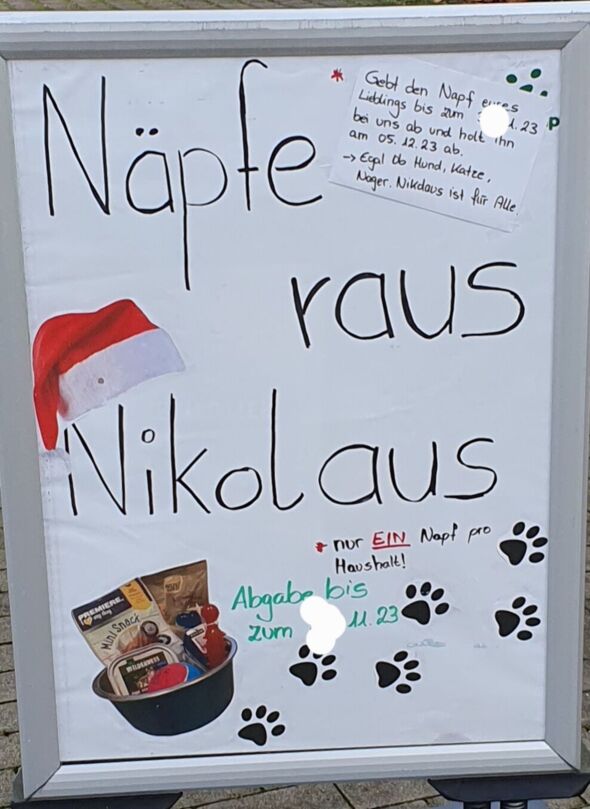 Näpfe
* Gebt den Napf eures
Lieblings bis zum 1.23
bei uns ab und holt ihn
am 05.12.23 ab.
→ Egal Ob Hund, Katze,
Nager. Nikolaus ist für Alle.
P
raus
Nikolaus
* nur EIN Napf pro
Haushalt!
Abgabe bis
zum 11.23
PREMIERE
my dog
Mini Snack
WILDERNESS